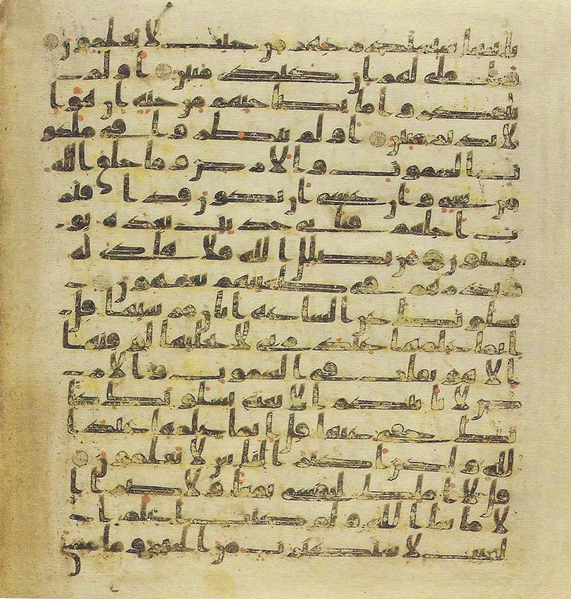 بايتنا سنستدرجهم من حيث لا يعلمون
واملي لهم ان كيدي متين اولم
يتفكروا ما بصاحبهم من جنة ان هو ا
لا نذير مبين اولم ينظروا في ملكو
ت السموت والارض وما خلق الله
من شي وان عسى ان يكون قد اقتر
ب اجلهم فباي حديث بعده يو
منون من يضلل الله فلا هادي له
ويذرهم في طغينهم يعمهون يـ
سلونك عن الساعة ايان مرسيها قل
انما علمها عند ربي لا يجليها لوقتها
الا هو ثقلت في السموت والار
ض لا تاتيكم الا بغتة يسلونك كا
نك حفي عنها قل انما علمها عند ا
لله ولكن اكثر الناس لا يعلمون
قل لا املك لنفسي نفعا ولا ضرا ا
لا ما شا الله ولو كنت اعلم ا
لغيب لاستكثرت من الخير وما مسني